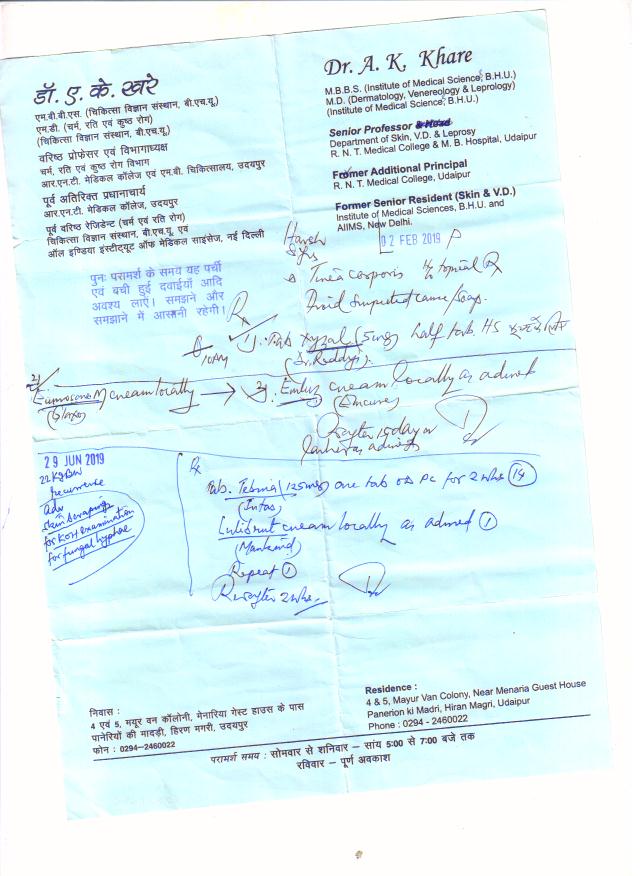 डॉ. ए. के. खरे
एम.बी.बी.एस. (चिकित्सा विज्ञान संस्थान, बी.एच.यू.)
एम.डी. (चर्म, रति एवं कुष्ठ रोग)
(चिकित्सा विज्ञान संस्थान, बी.एच.यू.)
वरिष्ठ प्रोफेसर एवं विभागाध्यक्ष
चर्म, रति एवं कुष्ठ रोग विभाग
आर.एन.टी. मेडिकल कॉलेज एवं एम.बी. चिकित्सालय, उदयपुर
पूर्व अतिरिक्त प्रधानाचार्य
आर.एन.टी. मेडिकल कॉलेज, उदयपुर
पूर्व वरिष्ठ रेजिडेन्ट (चर्म एवं रति रोग)
चिकित्सा विज्ञान संस्थान, बी.एच.यू. एवं
ऑल इण्डिया इंस्टीट्यूट ऑफ मेडिकल साइंसेज, नई दिल्ली
Dr. A. K. Khare
M.B.B.S. (Institute of Medical Science, B.H.U.)
M.D. (Dermatology, Venereology & Leprology)
(Institute of Medical Science, B.H.U.)
Senior Professor
Department of Skin, V.D. & Leprosy
R. N. T. Medical College & M. B. Hospital, Udaipur
Former Additional Principal
R. N. T. Medical College, Udaipur
Former Senior Resident (Skin & V.D.)
Institute of Medical Sciences, B.H.U. and
AIIMS, New Delhi.
पुनः परामर्श के समय यह पर्ची
एवं बची हुई दवाईयाँ आदि
अवश्य लाएं। समझने और
समझाने में आसानी रहेगी।
Harsh
02 FEB 2019
Tinea corporis H/o topical Rx
Avoid
Rx
Tab Xyzal (5mg) half tab HS
(Dr. Reddy's)
Eumosone M cream locally
(Glaxo)
cream locally as advised
(Emcure)
29 JUN 2019
22 Kg BW
recurrence
adv
skin scraping
for KOH examination
for fungal hyphae
Rx
Tab. (125mg) one tab OD PC for 2 wks 14
(Intas)
cream locally as advised 1
(Mankind)
Repeat 1
R after 2 wks.
निवास :
4 एवं 5, मयूर वन कॉलोनी, मेनारिया गेस्ट हाउस के पास
पानेरियों की मादड़ी, हिरण मगरी, उदयपुर
फोन : 0294-2460022
Residence :
4 & 5, Mayur Van Colony, Near Menaria Guest House
Panerion ki Madri, Hiran Magri, Udaipur
Phone : 0294 - 2460022
परामर्श समय : सोमवार से शनिवार – सांय 5:00 से 7:00 बजे तक
रविवार – पूर्ण अवकाश